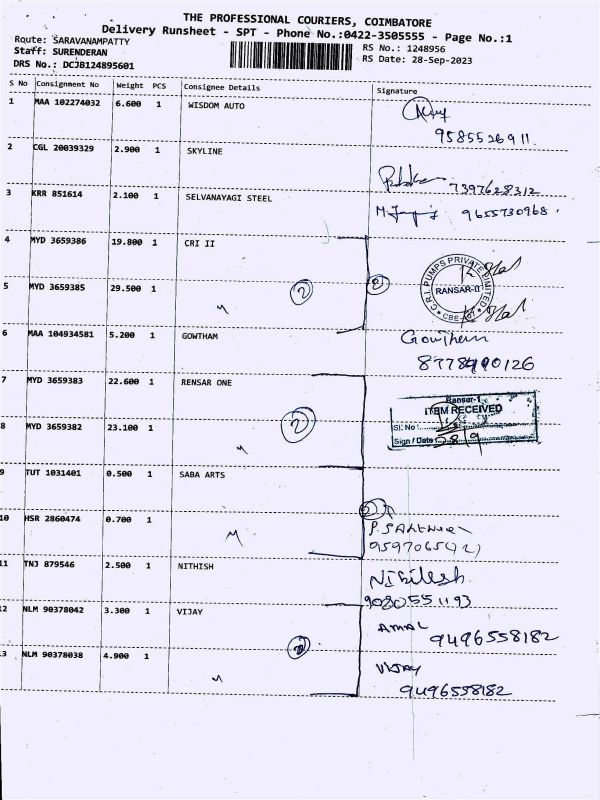 THE PROFESSIONAL COURIERS, COIMBATORE
Delivery Runsheet - SPT - Phone No.:0422-3505555 - Page No.:1
Route: SARAVANAMPATTY
RS No.: 1248956
Staff: SURENDERAN
RS Date: 28-Sep-2023
DRS No.: DCJB124895601
S No Consignment No Weight PCS Consignee Details Signature
1 MAA 102274032 6.600 1 WISDOM AUTO
9585526911
2 CGL 20039329 2.900 1 SKYLINE
7397628312
3 KRR 851614 2.100 1 SELVANAYAGI STEEL
9655730968
4 MYD 3659386 19.800 1 CRI II
C.R.I. PUMPS PRIVATE LIMITED
RANSAR-II
5 MYD 3659385 29.500 1 2 2
6 MAA 104934581 5.200 1 GOWTHAM Gowtham
7 MYD 3659383 22.600 1 RENSAR ONE
Ransar-1
ITEM RECEIVED
Sl. No
8 MYD 3659382 23.100 1 2
Sign / Date 28/9
9 TUT 1031401 0.500 1 SABA ARTS
10 HSR 2860474 0.700 1
11 TNJ 879546 2.500 1 NITHISH Nikilesh
9080551193
12 NLM 90378042 3.300 1 VIJAY AMAL
9496558182
13 NLM 90378038 4.900 1 VIJAY
9496558182